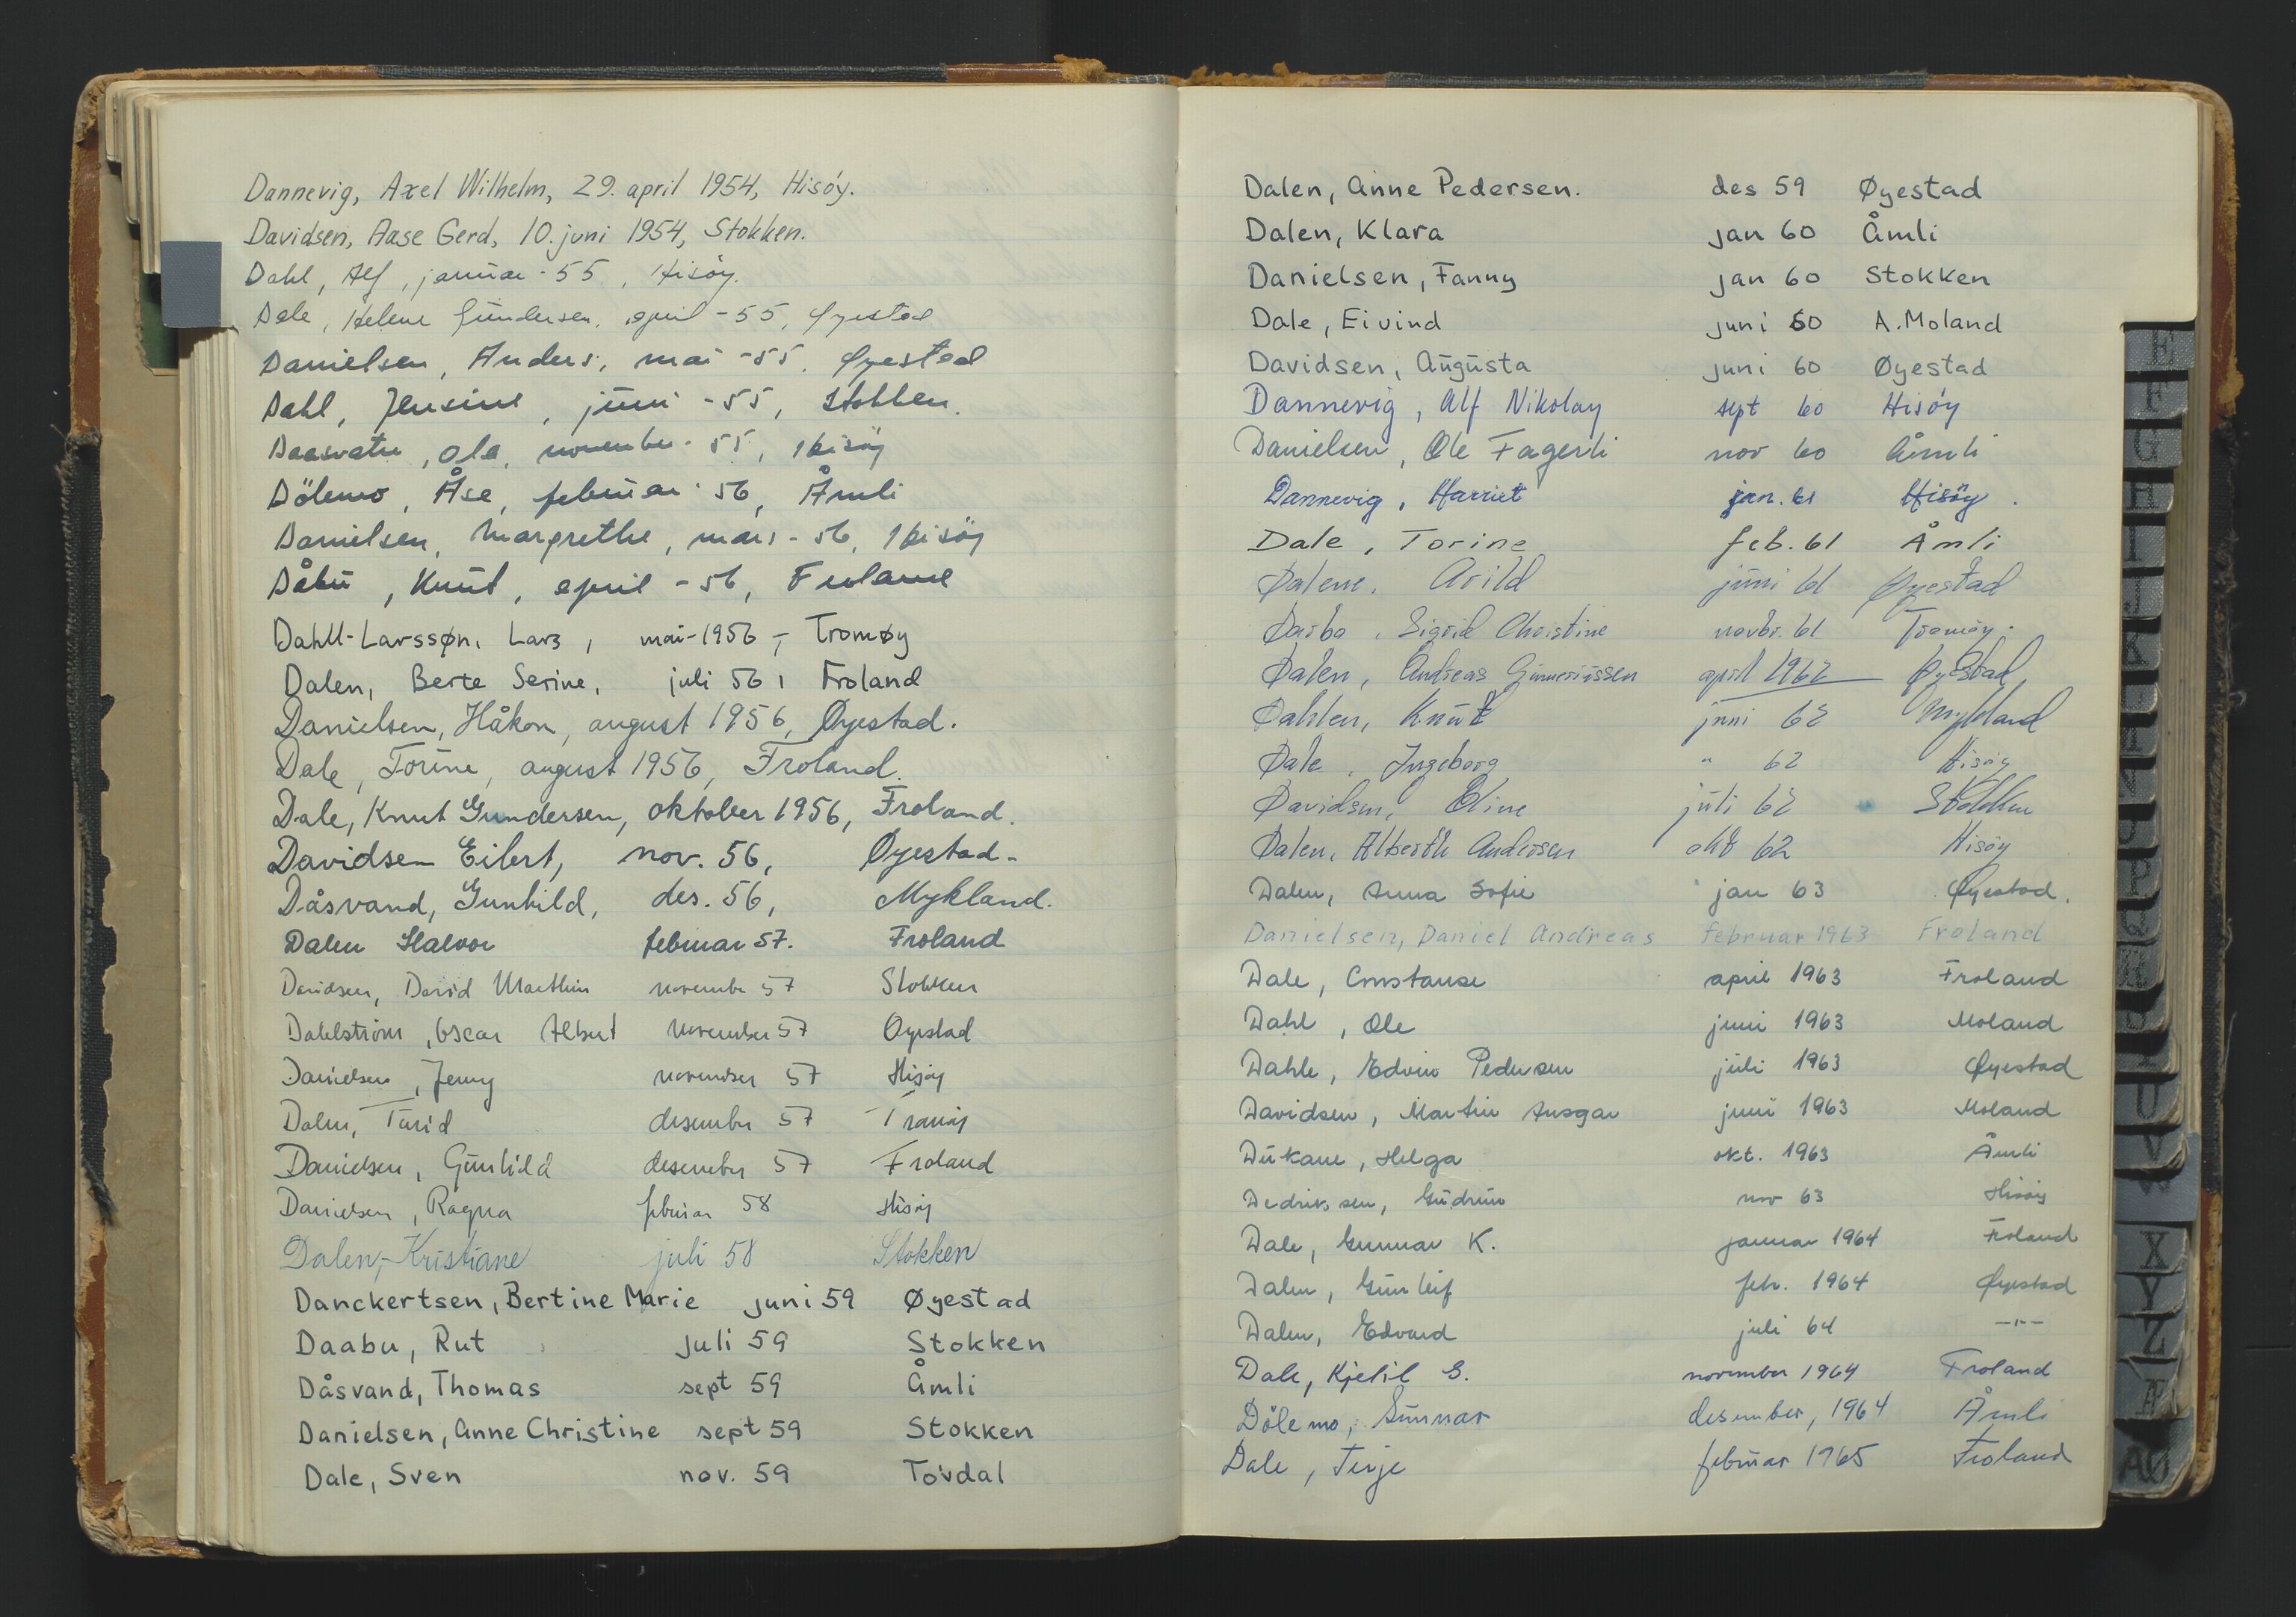 Dannevig, Axel Wilhelm, 29. april 1954, Hisöy.
Davidsen, Aase Gerd, 10. juni 1954, Stokken.
Dahl, Alf, januar -55, Hisöy.
Dale, Helene Gundersen, april -55, Øyestad
Danielsen, Anders, mai -55, Øyestad
Dahl, Jensine, juni -55, Stokken.
Daasvatn, Ola, november -55, Hisöy
Dölemo, Åse, februar 56, Åmli
Danielsen, Margrethe, mars - 56, Hisöy
Dåbu, Knut, april -56, Froland
Dahll-Larssøn, Lars, mai-1956, Tromøy
Dalen, Berte Serine, juli 56, Froland
Danielsen, Håkon, august 1956, Øyestad.
Dale, Torine, august 1956, Froland.
Dale, Knut Gundersen, oktober 1956, Froland.
Davidsen Eilert, nov. 56, Øyestad-
Dåsvand, Gunhild, des. 56, Mykland.
Dalen Halvor februar 57. Froland
Davidsen, David Marthin november 57 Stokken
Dahlström, Oscar Albert november 57 Øyestad
Danielsen, Jenny november 57 Hisöy
Dalen, Turid desember 57 Tromöy
Danielsen, Gunhild desember 57 Froland
Danielsen, Ragna februar 58 Hisöy
Dalen, Kristiane juli 58 Stokken
Danckertsen, Bertine Marie juni 59 Øyestad
Daabu, Rut juli 59 Stokken
Dåsvand, Thomas sept 59 Åmli
Danielsen, Anne Christine sept 59 Stokken
Dale, Sven nov. 59 Tovdal
Dalen, Anne Pedersen. des 59 Øyestad
Dalen, Klara jan 60 Åmli
Danielsen, Fanny jan 60 Stokken
Dale, Eivind juni 60 A. Moland
Davidsen, Augusta juni 60 Øyestad
Dannevig, Alf Nikolay sept 60 Hisöy
Danielsen, Ole Fagerli nov 60 Åmli
Dannevig, Harriet jan. 61 Hisöy.
Dale, Torine feb. 61 Åmli
Dalene, Arild juni 61 Øyestad
Darbo, Sigrid Christine novbr. 61 Tromöy.
Dalen, Andreas Gunneriussen april 1962 Øyestad
Dahlen, Knut juni 62 Mykland
Dale, Ingeborg " 62 Hisöy
Davidsen, Eline juli 62 Stokken
Dalen, Alberth Andersen okt 62 Hisöy
Dalen, Anna Sofie jan 63 Øyestad.
Danielsen, Daniel Andreas Februar 1963 Froland
Dale, Constanse april 1963 Froland
Dahl, Ole juni 1963 Moland
Dahle, Edvin Pedersen juli 1963 Øyestad
Davidsen, Martin Ansgar juni 1963 Moland
Dukane, Helga okt. 1963 Åmli
Dedriksen, Gudrun nov 63 Hisöy
Dale, Gunnar K. januar 1964 Froland
Dalen, Gunleif febr. 1964 Øyestad
Dalen, Edvard juli 64 —"—
Dale, Kjetil G. november 1964 Froland
Dölemo, Gunnar desember, 1964 Åmli
Dale, Terje februar 1965 Froland
E
F
G
H
I
J
K
P
U
V
W
X
Y
Z
Æ
AØ